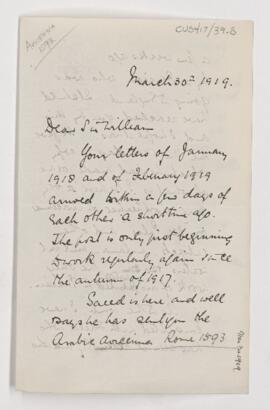 Avicenna
1593
CUS417/39.8
March 30th 1919.
Dear Sir William
Your letters of January
1918 and of February 1919
arrived within a few days of
each other a short time ago.
The post is only just beginning
to work regularly again since
the autumn of 1917.
Saeed is here and well
says he has sent you the
Arabic Avicenna Rome 1593